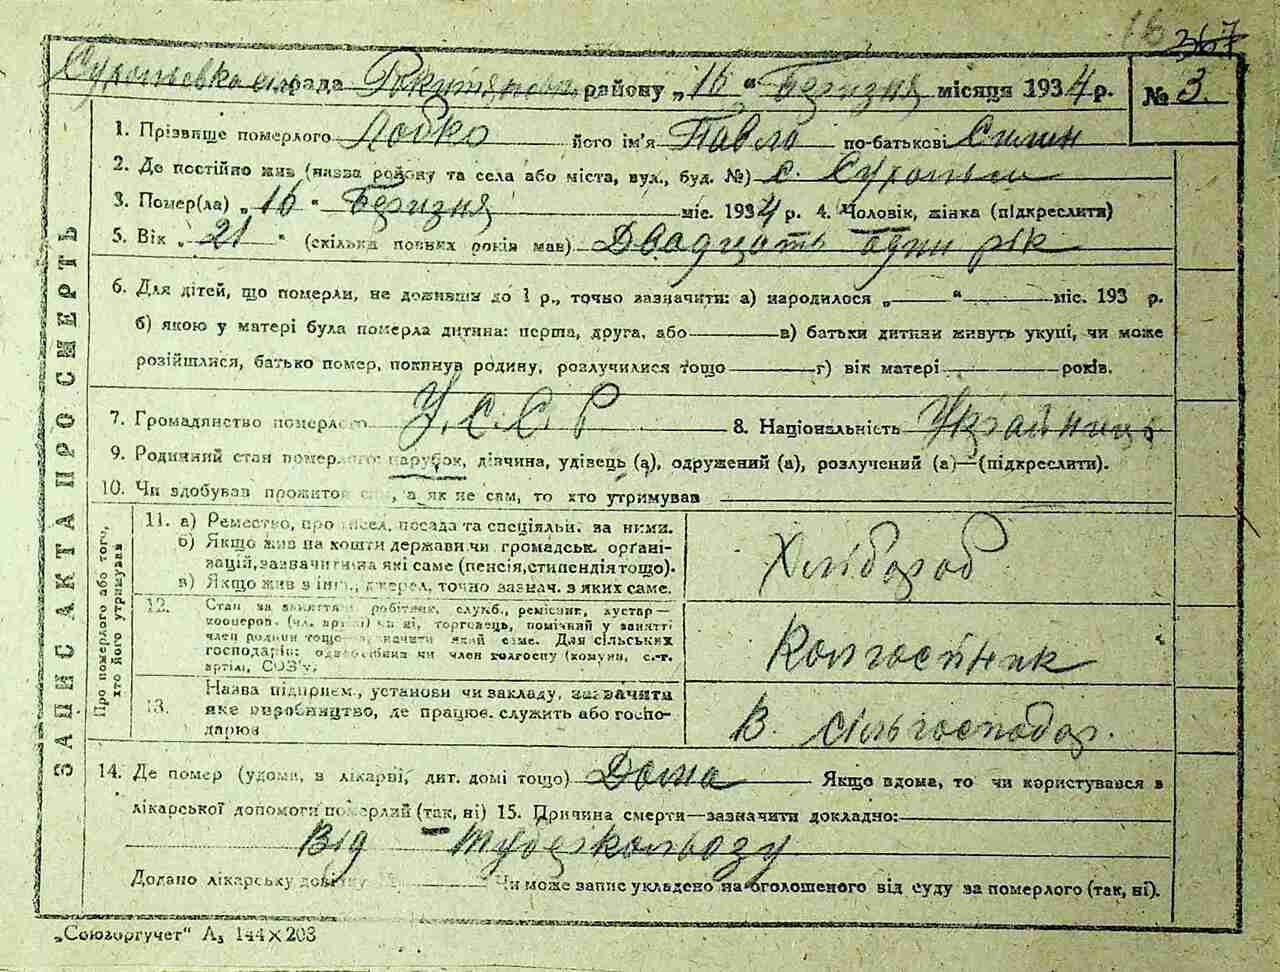 18 367
сільрада Рокитянськ. району „16" Березня місяця 1934 р. № 3.
1. Прізвище померлого Лобко його ім'я Павло по-батькові Силин
2. Де постійно жив (назва району та села або міста, вул., буд. №) с.
3. Помер(ла) „16" Березня міс. 1934 р. 4. Чоловік, жінка (підкреслити)
5. Вік „21" (скільки повних років мав) Двадцать один рік
6. Для дітей, що померли, не доживши до 1 р., точно зазначити: а) народилося „ " міс. 193 р.
б) якою у матері була померла дитина: перша, друга, або в) батьки дитини живуть укупі, чи може
розійшлися, батько помер, покинув родину, розлучилися тощо г) вік матері років.
7. Громадянство померлого У.С.С.Р 8. Національність Українець
9. Родинний стан померлого: парубок, дівчина, удівець (а), одружений (а), розлучений (а)—(підкреслити).
10. Чи здобував прожиток сам, а як не сам, то хто утримував
ЗАПИС АКТА ПРО СМЕРТЬ
Про померлого або того,
хто його утримував
11. а) Ремество, промисел, посада та спеціяльн. за ними.
б) Якщо жив на кошти держави чи громадськ. орґані-
зацій, зазначити на які саме (пенсія, стипендія тощо).
в) Якщо жив з інш. джерел, точно зазнач. з яких саме.
Хлібороб
12. Стан за заняттям: робітник, служб., ремісник, кустар—
кооперов. (чл. артілі) чи ні, торговець, помічний у занятті
член родини тощо—зазначити який саме. Для сільських
господарів: одноосібник чи член колгоспу (комуни, с.-г.
артіли, СОЗ'у.
Колгоспник
13. Назва підприєм., установи чи закладу, зазначити
яке виробництво, де працює, служить або госпо-
дарює
В. сільгосподар.
14. Де помер (удома, в лікарні, дит. домі тощо) Дома Якщо вдома, то чи користувався з
лікарської допомоги померлий (так, ні) 15. Причина смерти—зазначити докладно:
Від туберкольозу
Додано лікарську довідку № Чи може запис укладено на оголошеного від суду за померлого (так, ні).
„Союзоргучет" А₅ 144×203